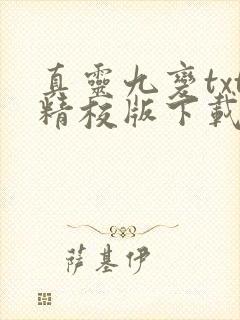 真靈九變txt
精校版下載
薩基伊